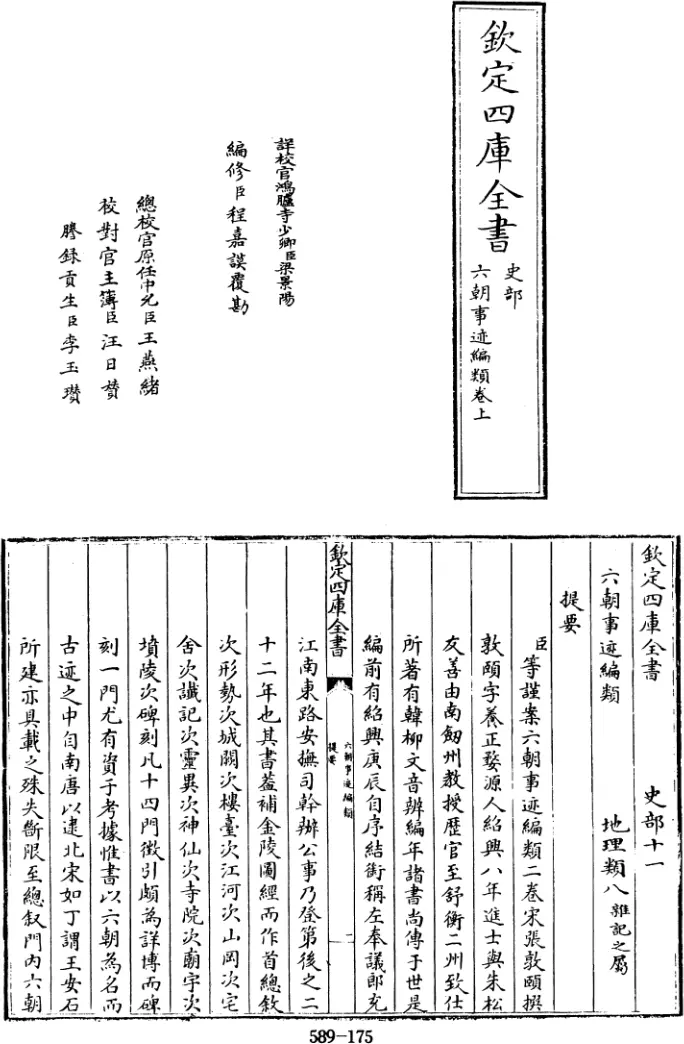 欽定四庫全書
史部
六朝事迹編類卷上
詳校官鴻臚寺少卿臣梁景陽
編修臣程嘉謨覆勘
總校官原任中允臣王燕緒
校對官主簿臣汪日贊
謄錄貢生臣李玉瓚
欽定四庫全書 史部十一
六朝事迹編類 地理類八雜記之屬
提要
臣等謹案六朝事迹編類二卷宋張敦頤撰
敦頤字養正婺源人紹興八年進士與朱松
友善由南劒州教授歷官至舒衡二州致仕
所著有韓柳文音辨編年諸書尚傳于世是
編前有紹興庚辰自序結銜稱左奉議郎充
欽定四庫全書
六朝事迹編類
提要
一
江南東路安撫司幹辦公事乃登第後之二
十二年也其書葢補金陵圖經而作首總叙
次形勢次城闕次樓臺次江河次山岡次宅
舍次讖記次靈異次神仙次寺院次廟宇次
墳陵次碑刻凡十四門徵引頗為詳博而碑
刻一門尤有資于考據惟書以六朝為名而
古迹之中自南唐以逮北宋如丁謂王安石
所建亦具載之殊失斷限至總叙門内六朝
589-175